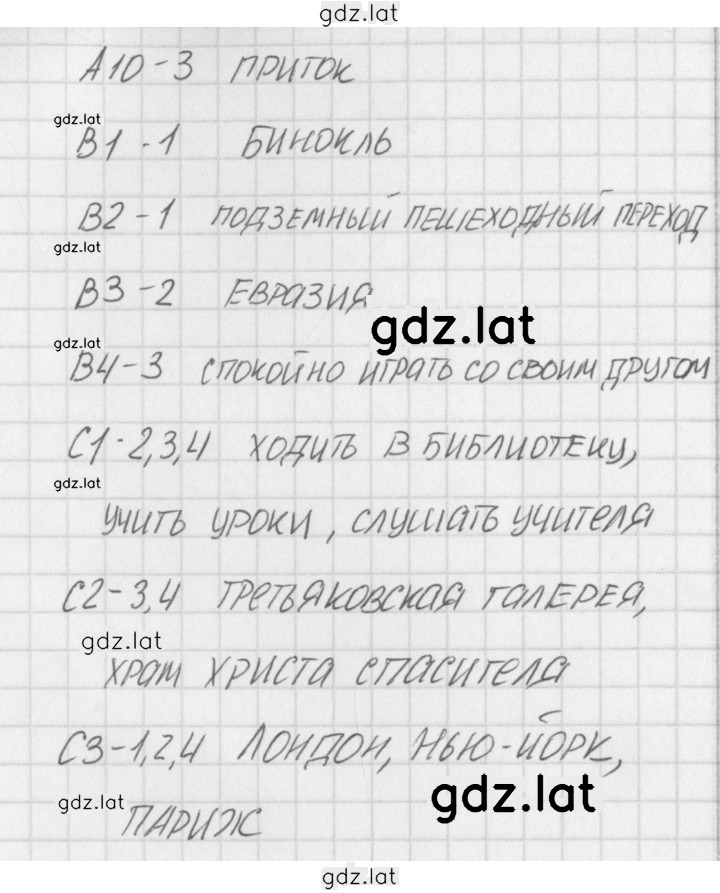 gdz.lat
А10-3 ПРИТОК
gdz.lat
В1-1 БИНОКЛЬ
В2-1 ПОДЗЕМНЫЙ ПЕШЕХОДНЫЙ ПЕРЕХОД
gdz.lat
В3-2 ЕВРАЗИЯ
gdz.lat
gdz.lat
В4-3 СПОКОЙНО ИГРАТЬ СО СВОИМ ДРУГОМ
С1-2,3,4 ХОДИТЬ В БИБЛИОТЕКУ,
gdz.lat
УЧИТЬ УРОКИ, СЛУШАТЬ УЧИТЕЛЯ
С2-3,4 ТРЕТЬЯКОВСКАЯ ГАЛЕРЕЯ,
gdz.lat
ХРАМ ХРИСТА СПАСИТЕЛЯ
С3-1,2,4 ЛОНДОН, НЬЮ-ЙОРК,
gdz.lat
gdz.lat
ПАРИЖ
gdz.lat